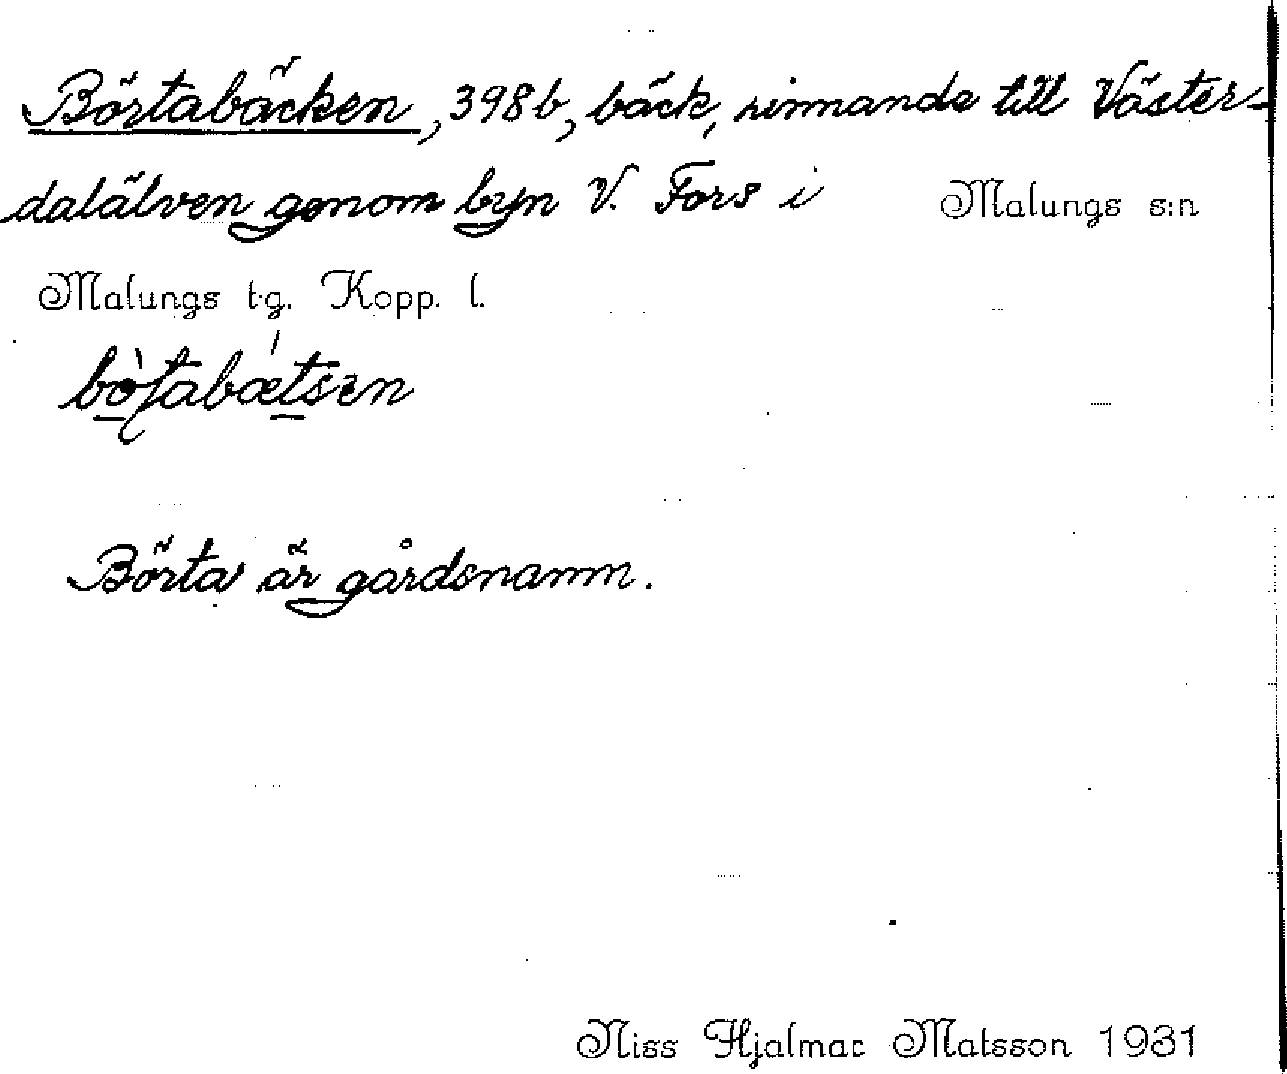 Börtabäcken, 398b, bäck, rinnande till Väster-
dalälven genom byn V. Fors i Malungs s:n
Malungs t.g. Kopp. l.
Börta är gårdsnamn.
Niss Hjalmar Matsson 1931